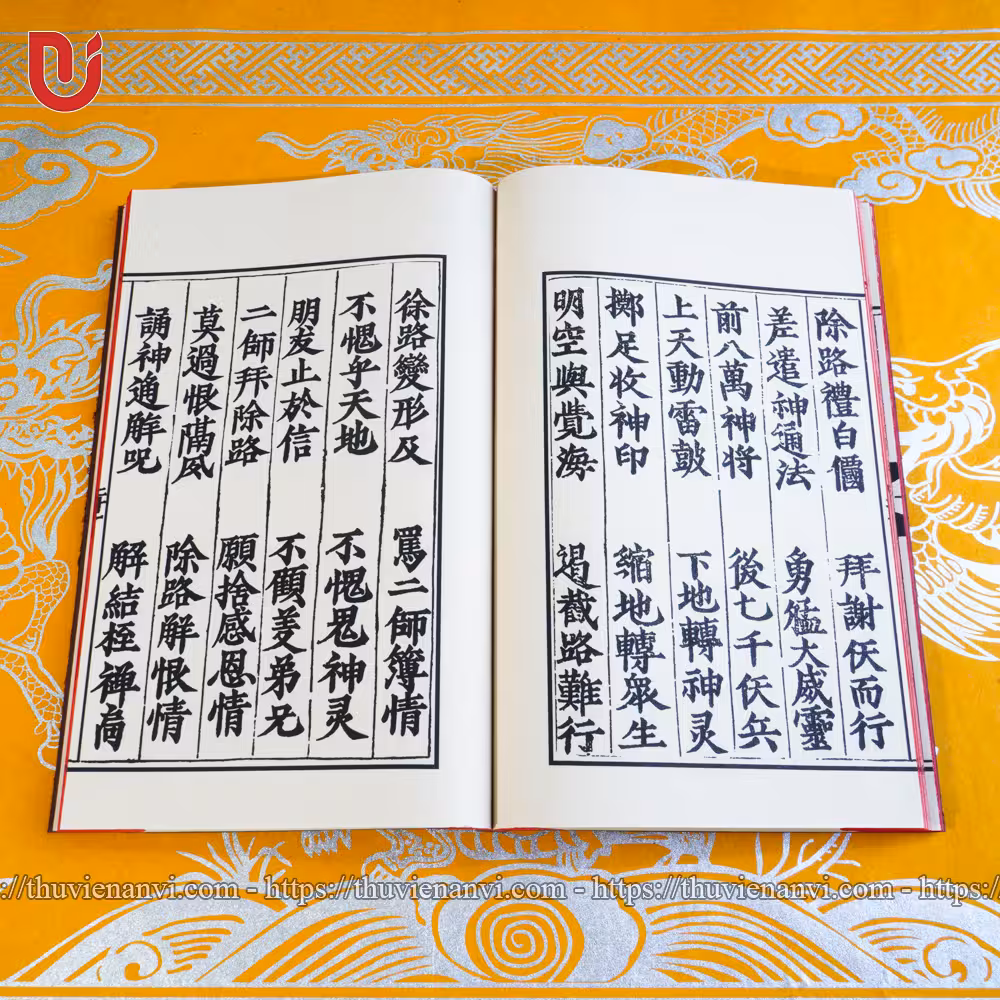 除路禮白 拜謝仸而行
差遣神通法 勇猛大威靈
前八萬神将 後七千仸兵
上天動雷鼓 下地轉神灵
擲足收神印 縮地轉眾生
明空與覺海 遏截路難行
徐路變形及 罵二師簿情
不愧乎天地 不愧鬼神灵
明发止於信 不顧姜弟兄
二師拜除路 願捨感恩情
莫過恨隔 除路解恨情
誦神通解呪 解結桎禅高
https://thuvienanvi.com - https://thuvienanvi.com - https://thuvienanvi.com - https